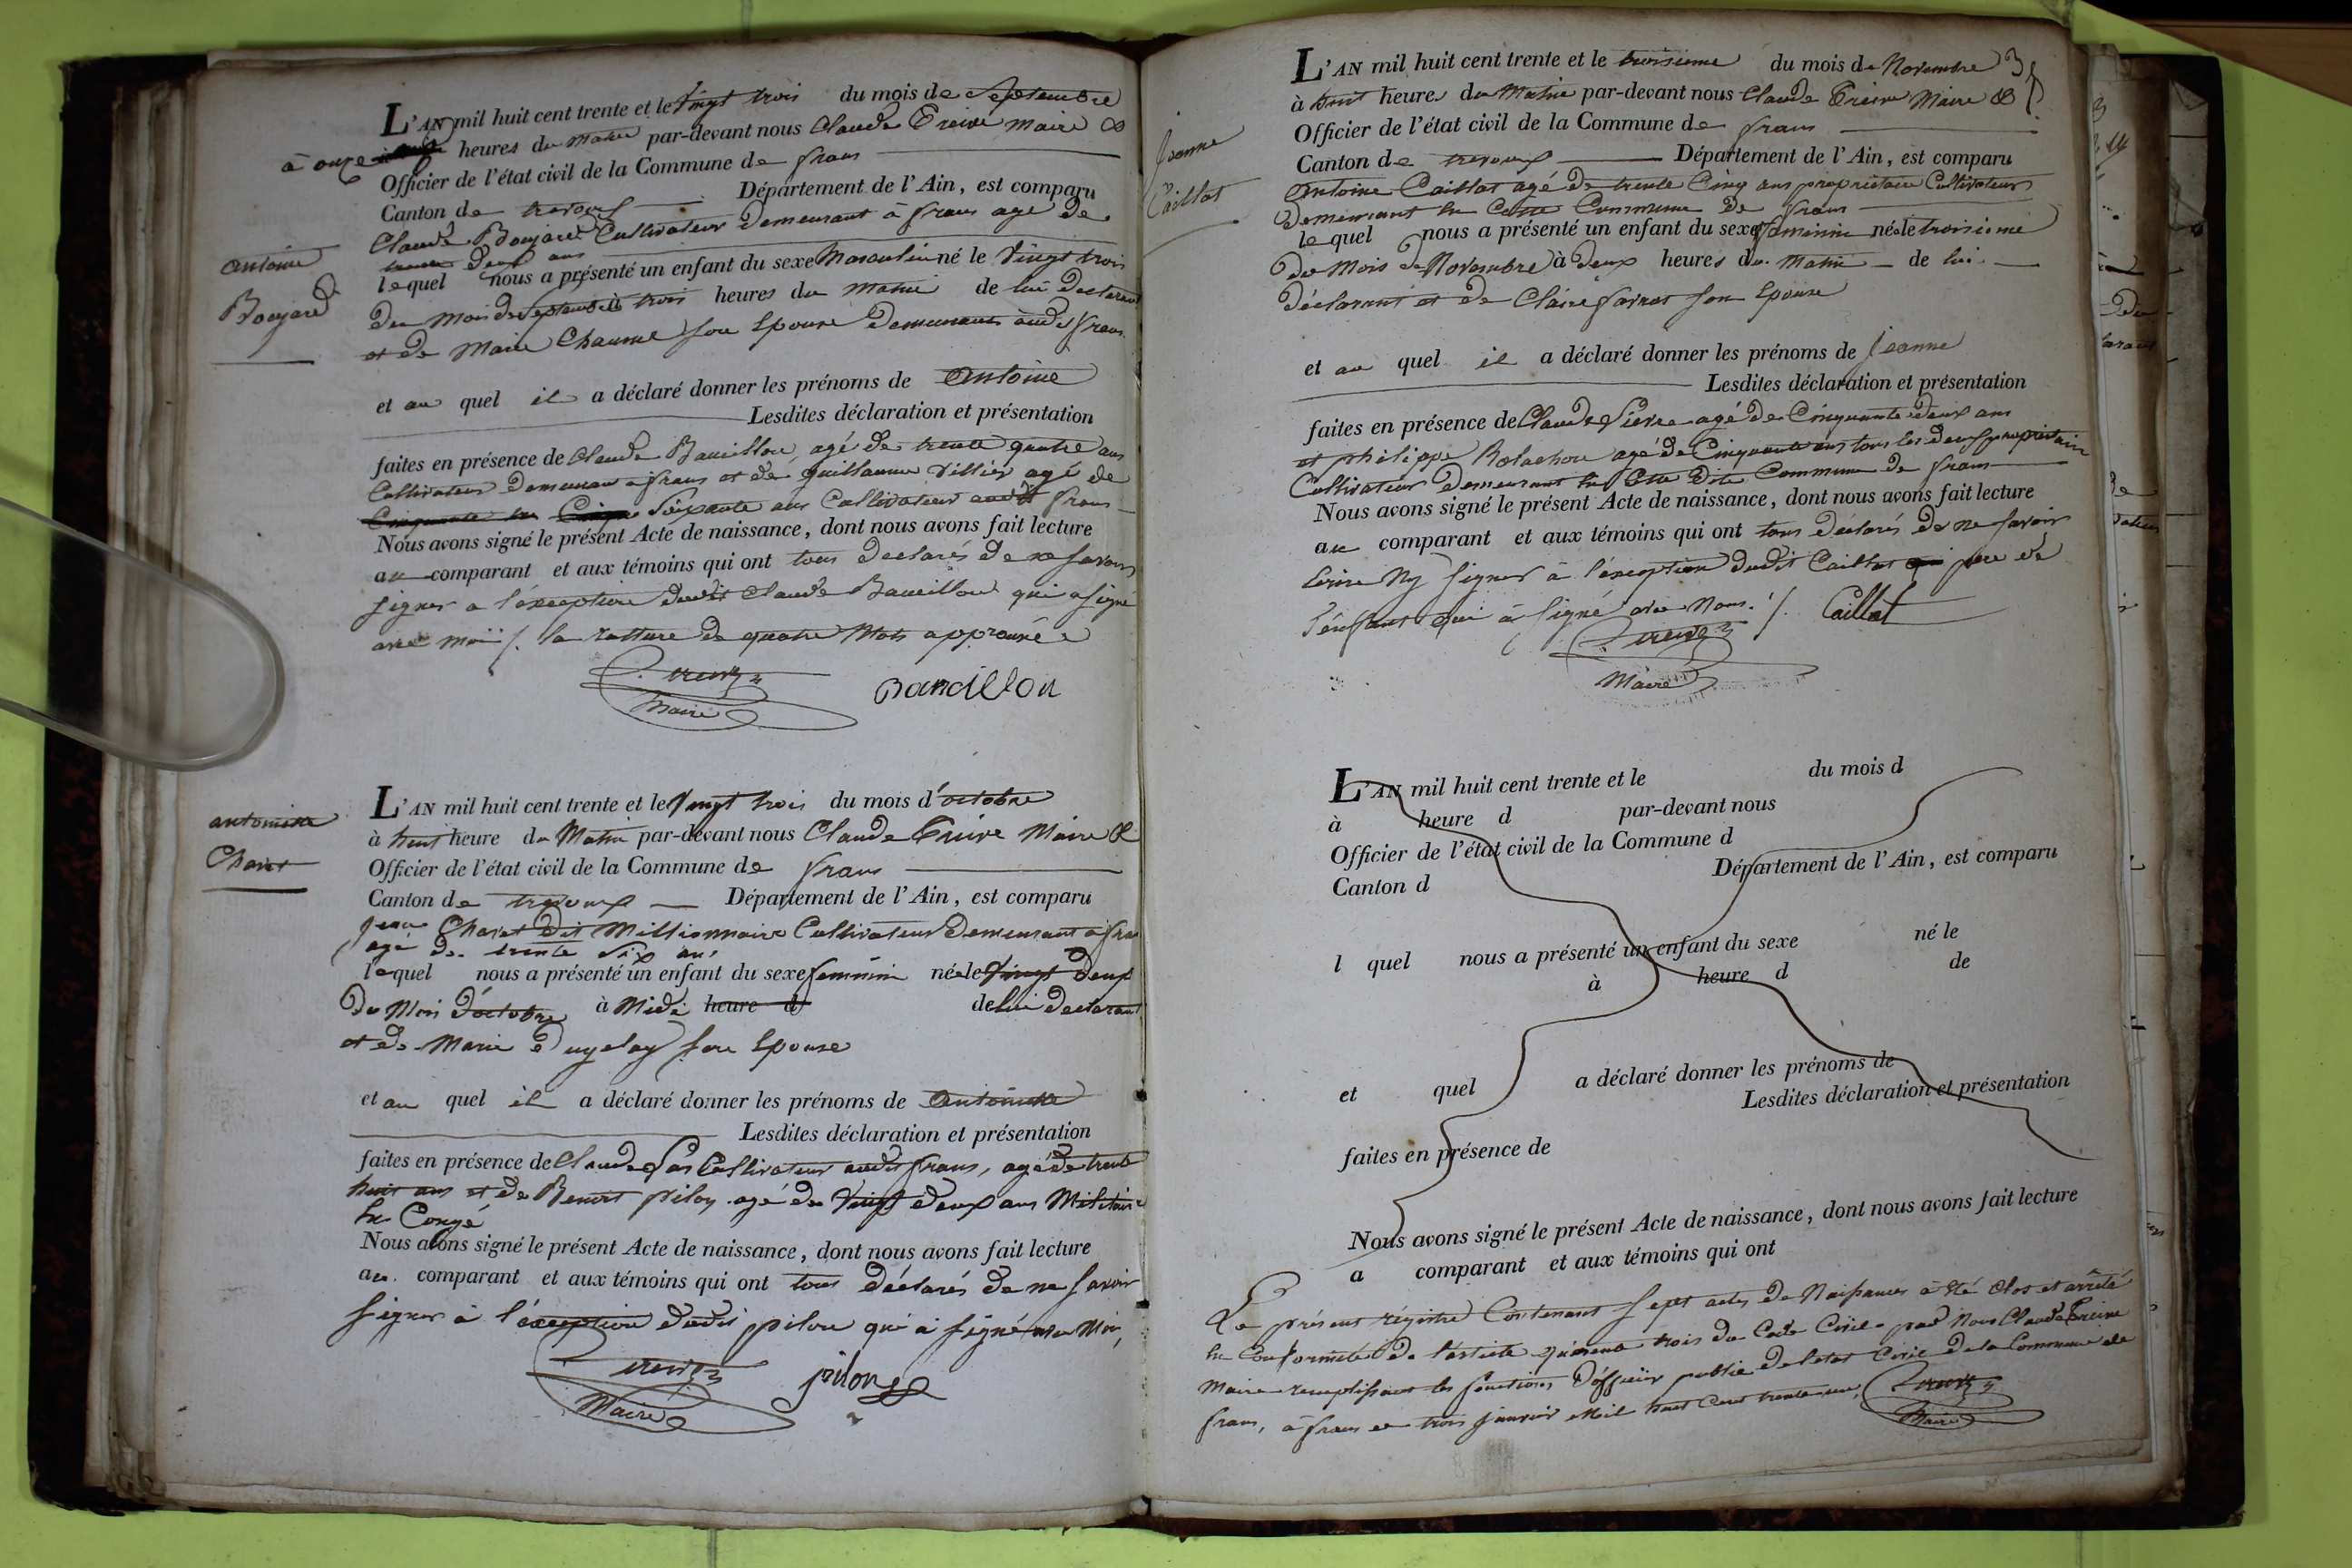 L'AN mil huit cent trente et le Vingt trois du mois de Septembre
à onze heures du Matin par-devant nous Claude Treive maire &
Officier de l'état civil de la Commune de frans
Canton de trevoux Département de l'Ain, est comparu
Claude Boujard Cultivateur Demeurant à frans agé de
trente Deux ans
lequel nous a présenté un enfant du sexe Masculin né le Vingt trois
Du Mois de Septembre à trois heures du matin de lui declarant
et de Marie Chaume son Epouse Demeurants audit frans
antoine
Boujard
et au quel il a déclaré donner les prénoms de Antoine
Lesdites déclaration et présentation
faites en présence de Claude agé de trente quatre ans
Cultivateur Demeurant a frans et de guillaume Villier agé de
Cinquante Soixante ans Cultivateur audit frans
Nous avons signé le présent Acte de naissance, dont nous avons fait lecture
au comparant et aux témoins qui ont tous declarés de ne savoir
signer a l'exception dudit Claude qui a signé
avec moi /. la ratture de quatre Mots approuvée
Treive
Maire
antoinette
Charet
L'AN mil huit cent trente et le Vingt trois du mois d'octobre
à huit heure du Matin par-devant nous Claude Treive Maire &
Officier de l'état civil de la Commune de frans
Canton de trevoux Département de l'Ain, est comparu
Jean Charet dit Millionnaire Cultivateur Demeurant à frans
agé de trente Six ans
lequel nous a présenté un enfant du sexe feminin née le Vingt Deux
Du Mois d'octobre à Midi heure d de lui declarant
et de Marie son Epouse
et au quel il a déclaré donner les prénoms de Antoinette
Lesdites déclaration et présentation
faites en présence de Claude Cultivateur audit frans, agé de trente
huit ans et de Benoit pilon agé de Vingt deux ans Militaire
En Congé
Nous avons signé le présent Acte de naissance, dont nous avons fait lecture
au comparant et aux témoins qui ont tous déclarés de ne savoir
signer à l'éxception dudit pilon qui a signé avec Moi,
Treive
Maire
pilon
L'AN mil huit cent trente et le troisieme du mois de Novembre
à huit heures du Matin par-devant nous Claude Treive Maire &
Officier de l'état civil de la Commune de frans
Canton de trevoux Département de l'Ain, est comparu
Antoine Caillat agé de trente Cinq ans propriétaire Cultivateur
Demeurant en Cette Commune de frans
lequel nous a présenté un enfant du sexe feminin née le troisieme
Du Mois de Novembre à Deux heures du Matin de lui
Déclarant et de Claire son Epouse
Jeanne
Caillat
et au quel il a déclaré donner les prénoms de Jeanne
Lesdites déclaration et présentation
faites en présence de Claude agé de Cinquante Deux ans
et philippe agé de Cinquante ans tous les deux propriétaire
Cultivateur Demeurant en Cette Dite Commune de frans
Nous avons signé le présent Acte de naissance, dont nous avons fait lecture
au comparant et aux témoins qui ont tous déclarés de ne savoir
Ecrire Ny signer à l'éxception dudit Caillat père de
l'énfant qui à signé avec Nous. /. Caillat
Treive
Maire
L'AN mil huit cent trente et le du mois d
à heure d par-devant nous
Officier de l'état civil de la Commune d
Canton d Département de l'Ain, est comparu
l quel nous a présenté un enfant du sexe né le
à heure d de
et quel a déclaré donner les prénoms de
Lesdites déclaration et présentation
faites en présence de
Nous avons signé le présent Acte de naissance, dont nous avons fait lecture
a comparant et aux témoins qui ont
Le présent régistre Contenant Sept actes de Naissances à Eté Clos et arrêté
En Conformité de l'article quarante trois du Code Civil par Nous Claude Treive
Maire remplissant les fonctions D'officier public de l'etat Civil de la Commune de
frans, à frans le trois Janvier Mil huit Cent trente un,
Treive
Maire